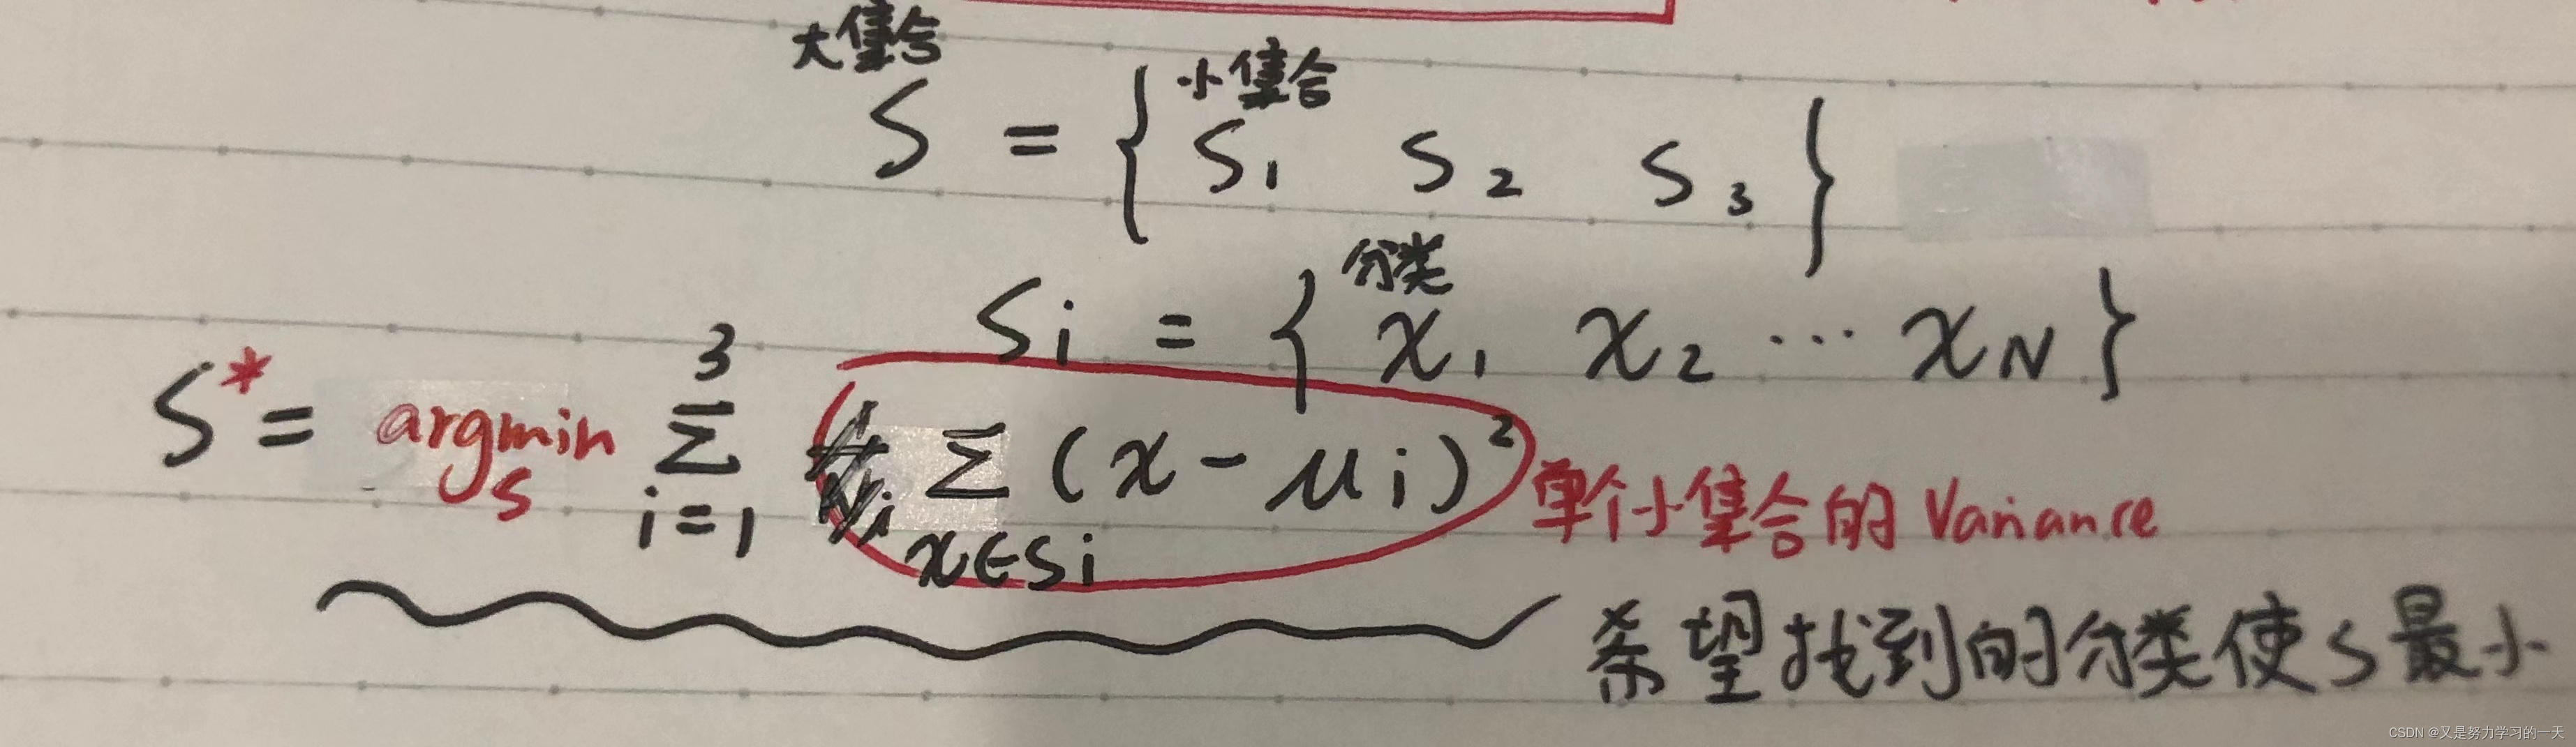 大集合
小集合
S = { S1 S2 S3 }
分类
Si = { x1 x2 ... xN }
S* = argmin S Σ i=1 3 Σ x∈Si (x - μi)²
单个小集合的 Variance
希望找到的分类使S最小
CSDN @又是努力学习的一天